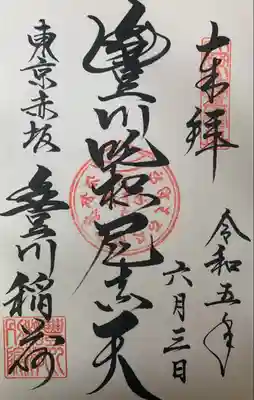 奉拝
令和五年
六月三日
豊川吒枳尼真天
東京赤坂
豊川稲荷